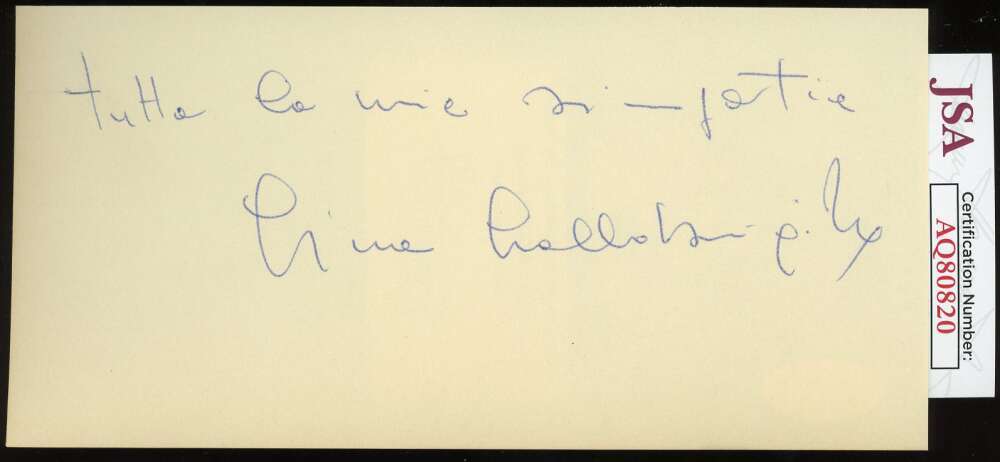 tutta la mia simpatia
Gina Lollobrigida
JSA
Certification Number:
AQ80820